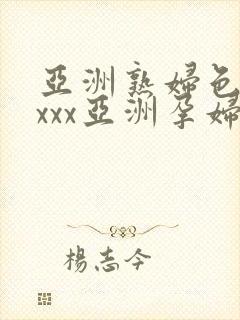 亞洲熟婦色
xxx亞洲孕婦
楊志今